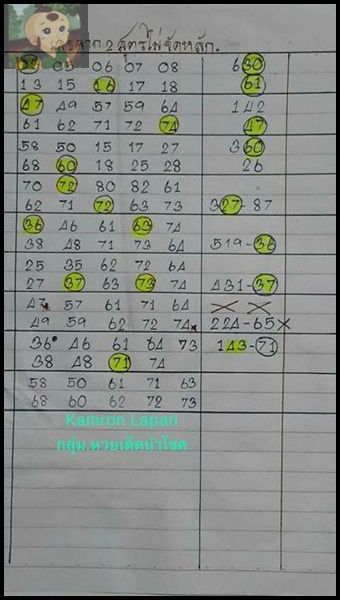 เลขลาก 2 สูตรไม่จัดหลัก.
04 05 06 07 08 630
13 15 16 17 18 61
47 49 57 59 64 142
61 62 71 72 74 47
58 50 15 17 27 360
68 60 18 25 28 26
70 72 80 82 61
62 71 72 63 73 327-87
36 46 61 63 74
38 48 71 73 64 519-36
25 35 62 72 64
27 37 63 73 74 431-37
47 57 61 71 64 X X
49 59 62 72 74 224-65X
36 46 61 64 73 143-71
38 48 71 74
58 50 61 71 63
68 60 62 72 73
Kamron Lapan
กลุ่ม.หวยเด็ดนำโชค